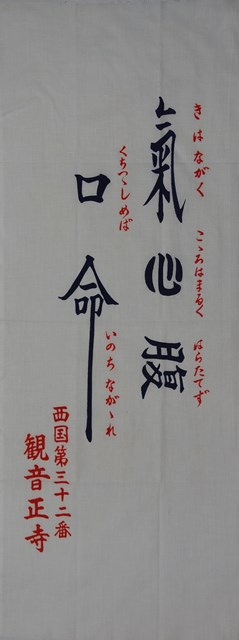 きはながく
こゝろはまるく
はらたてず
氣心腹
くちつゝしめば
いのちながゝれ
口命
西国第三十二番
観音正寺